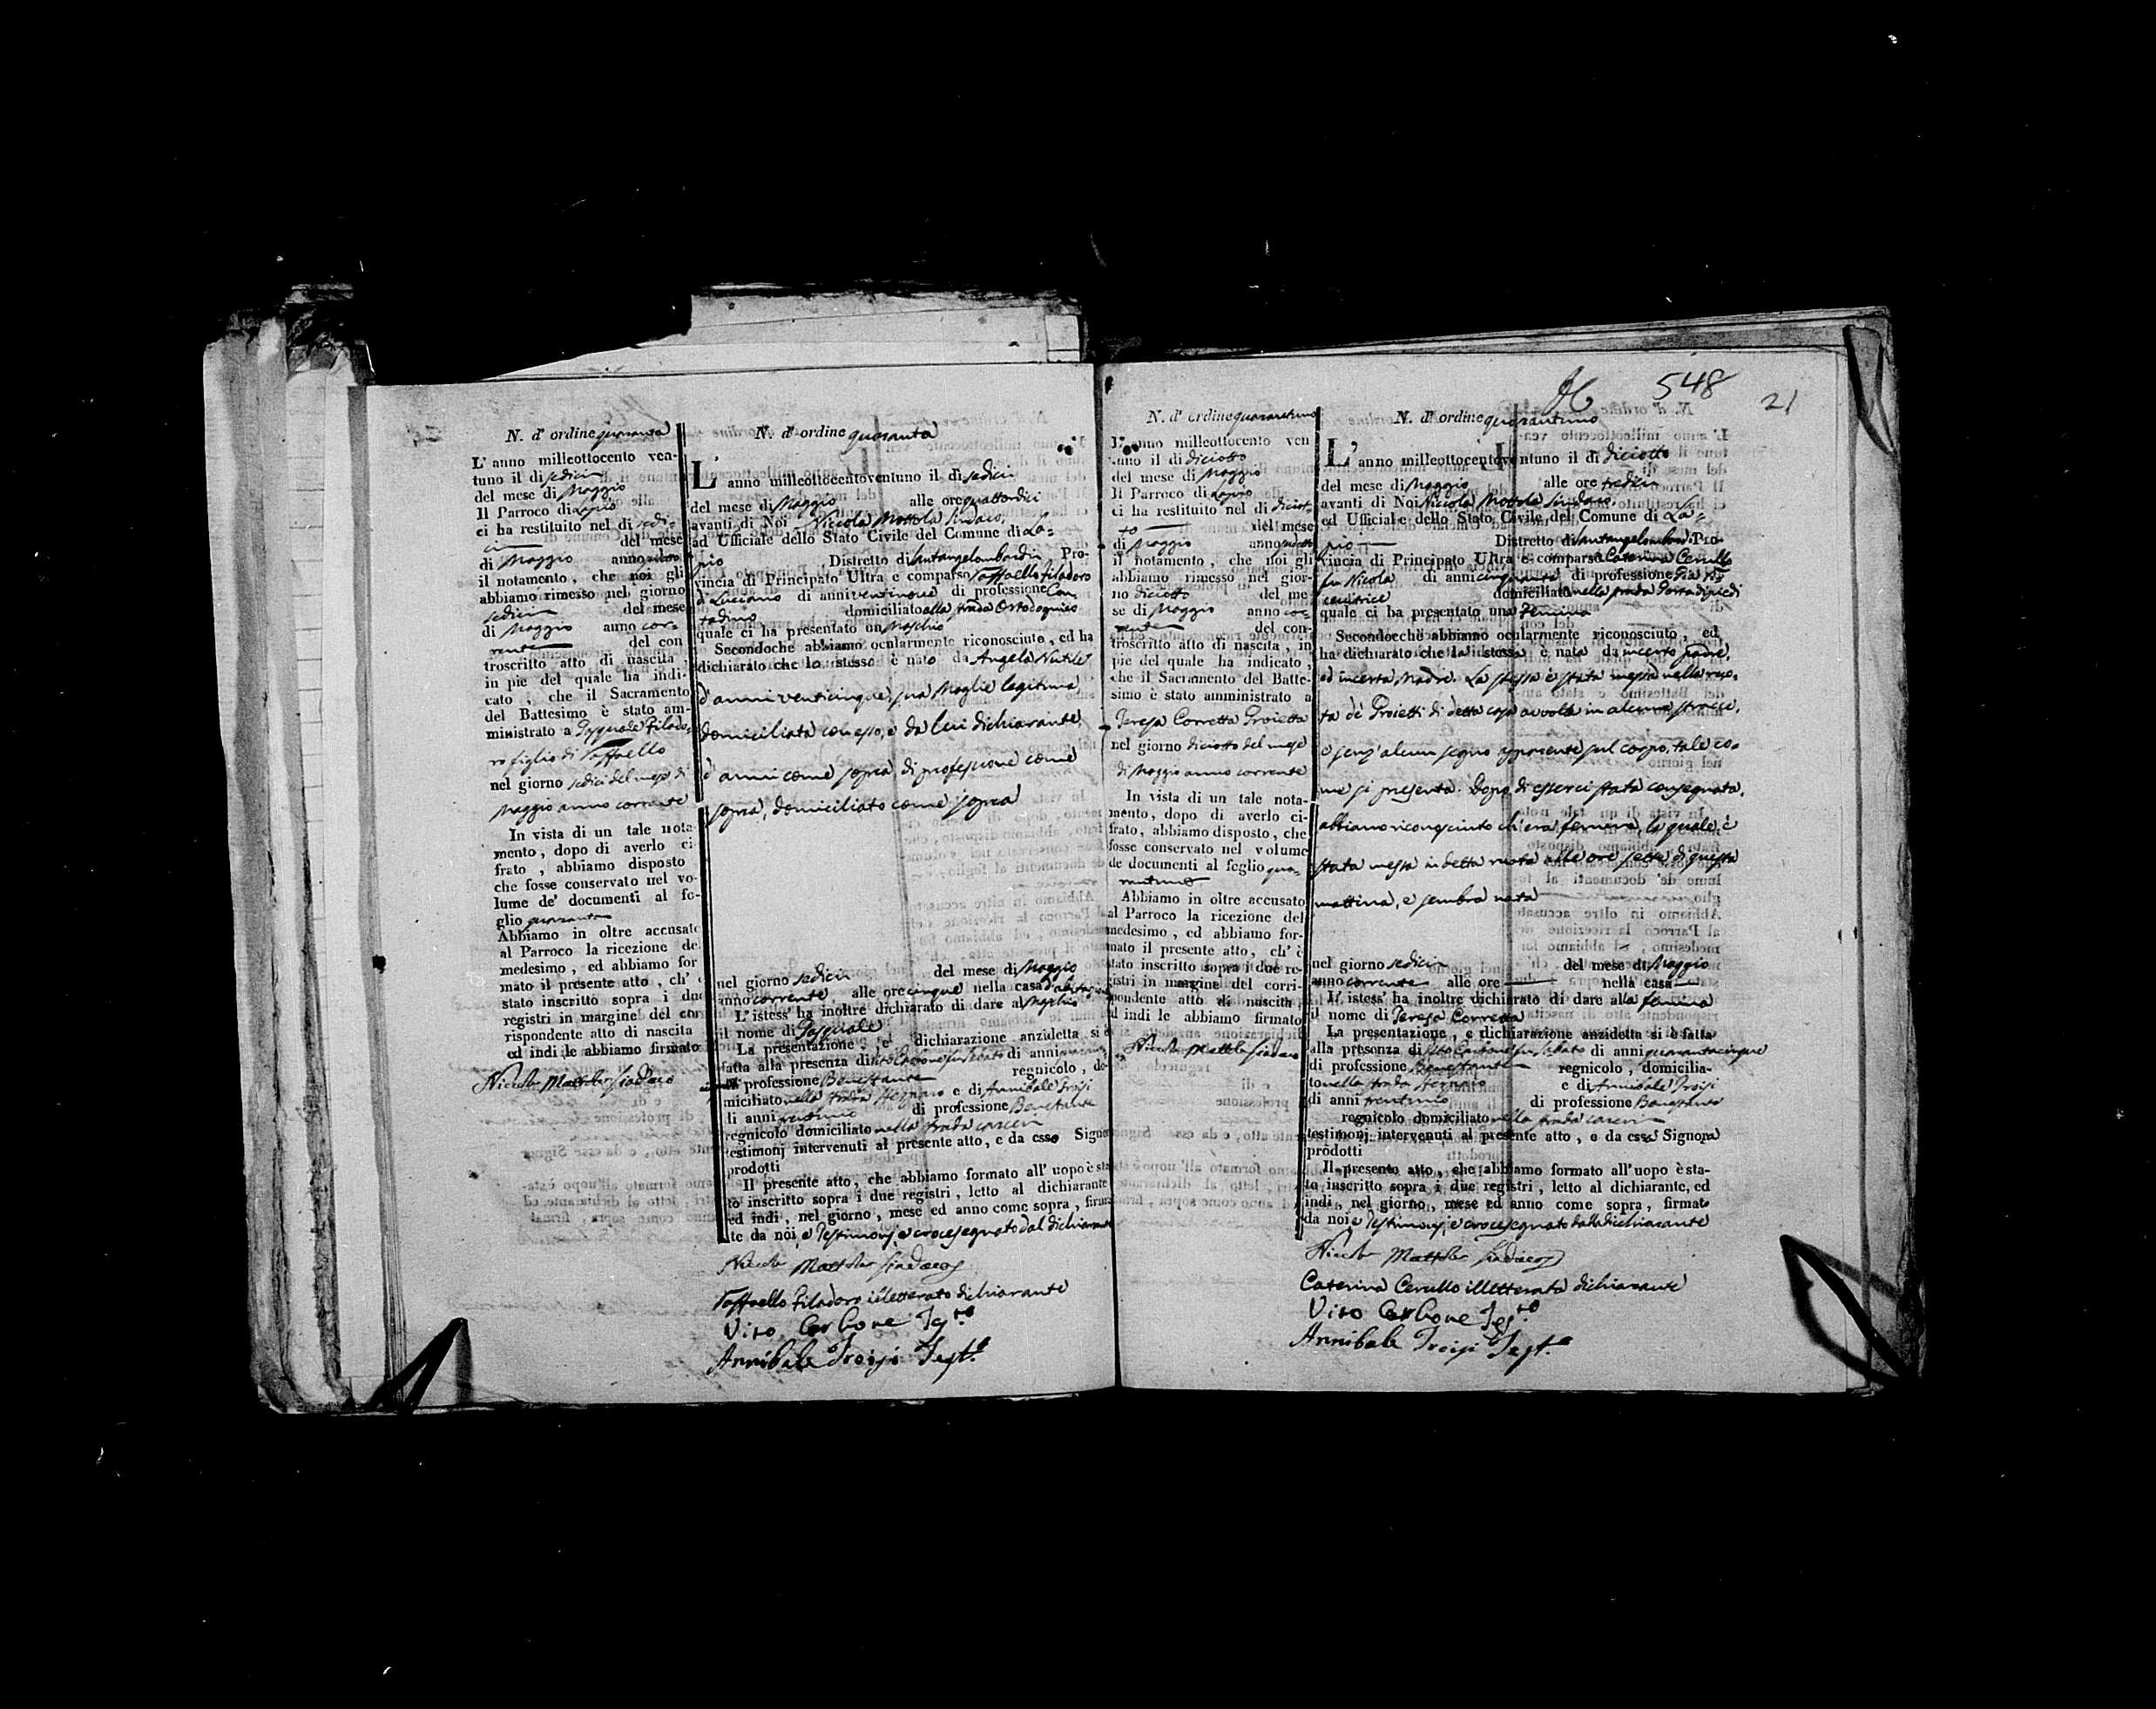 N. d' ordine quaranta
L' anno milleottocento ven-
tuno il di sedici
del mese di Maggio
Il Parroco di Lapio
ci ha restituito nel di sedi-
ci del mese
di Maggio anno
il notamento, che noi gli
abbiamo rimesso nel giorno
sedici del mese
di Maggio anno cor-
rente del con
troscritto atto di nascita,
in pie del quale ha indi-
cato, che il Sacramento
del Battesimo è stato am-
ministrato a Pasquale Filado-
ro figlio di Raffaello
nel giorno sedici del mese di
Maggio anno corrente
In vista di un tale nota-
mento, dopo di averlo ci
frato, abbiamo disposto
che fosse conservato nel vo-
lume de' documenti al fo-
glio quaranta
Abbiamo in oltre accusato
al Parroco la ricezione de
medesimo, ed abbiamo for
mato il presente atto, ch' è
stato inscritto sopra i due
registri in margine del cor
rispondente atto di nascita
ed indi le abbiamo firmato
Nicola Mottola Sindaco
N. d' ordine quaranta
L' anno milleottocentoventuno il di sedici
del mese di Maggio alle ore quattordici
avanti di Noi Niccola Mottola Sindaco,
ad Ufficiale dello Stato Civile del Comune di La-
pio Distretto di Santangelombardi, Pro-
vincia di Principato Ultra è comparso Raffaello Filadoro
di Luciano di anni ventinove di professione Con
tadino domiciliato alla strada Ortodognico
quale ci ha presentato un Maschio
Secondoche abbiamo ocularmente riconosciuto, ed ha
dichiarato che lo istesso è nato da Angela Nutile
d'anni venticinque, sua Moglie legitima
domiciliata con esso, e da lui dichiarante,
d'anni come sopra, di professione come
sopra, domiciliato come sopra
nel giorno sedici del mese di Maggio
anno corrente alle ore cinque nella casa d'abitazione
L' istess' ha inoltre dichiarato di dare al Maschio
il nome di Pasquale
La presentazione, e dichiarazione anzidetta si è
fatta alla presenza di Vito Carbone fu Sabato di anni
di professione Benestante regnicolo, do-
miciliato nella strada e di Annibale Troisi
di anni trentuno di professione Benestante
regnicolo domiciliato nella strada carceri
testimonj intervenuti al presente atto, e da esso Signor
prodotti
Il presente atto, che abbiamo formato all' uopo è sta
to inscritto sopra i due registri, letto al dichiarante
ed indi, nel giorno, mese ed anno come sopra, firma
te da noi, e Testimonj, e crocesegnato dal dichiarante
Nicola Mottola Sindaco
Raffaello Filadoro illetterato dichiarante
Vito Carbone Test.o
Annibale Troisi Test.e
N. d' ordine quarantuno
L' anno milleottocento ven
tuno il di diciotto
del mese di Maggio
Il Parroco di Lapio
ci ha restituito nel di diciot-
to del mese
di Maggio anno
il notamento, che noi gli
abbiamo rimesso nel gior-
no diciotto del me-
se di Maggio anno cor-
rente del con-
troscritto atto di nascita, in
pie del quale ha indicato,
che il Sacramento del Batte-
simo è stato amministrato a
Teresa Corretta Proietta
nel giorno diciotto del mese
di Maggio anno corrente
In vista di un tale nota-
mento, dopo di averlo ci-
frato, abbiamo disposto, che
fosse conservato nel volume
de documenti al foglio qua-
rantuno
Abbiamo in oltre accusato
al Parroco la ricezione del
medesimo, ed abbiamo for-
mato il presente atto, ch' è
stato inscritto sopra i due re-
gistri in margine del corri-
pondente atto di nascita,
d indi le abbiamo firmato
Nicola Mottola Sindaco
548 21
N. d' ordine quarantuno
L' anno milleottocentoventuno il di diciotto
del mese di Maggio alle ore tredici
avanti di Noi Niccola Mottola Sindaco,
ed Ufficiale dello Stato Civile del Comune di La-
pio Distretto di Santangelombardi Pro-
vincia di Principato Ultra è comparsa Caterina Cerullo
fu Nicola di anni cinquanta di professione Pia Ri-
cevitrice domiciliata nella strada Portadipiedi
quale ci ha presentato una Femina
Secondocchè abbiamo ocularmente riconosciuto, ed
ha dichiarato che la istessa è nata da incerto padre,
ed incerta Madre. La stessa è stata messa nella ruo-
ta de' Proietti di detta casa avvolta in alcune stracce,
e senz' alcun segno apparente sul corpo, tale co-
me si presenta. Dopo di esserci stata consegnata,
abbiamo riconosciuto ch' era femina, la quale è
stata messa in detta ruota alle ore sette di questa
mattina, e sembra nata
nel giorno sedici del mese di Maggio
anno corrente alle ore nella casa
L' istess' ha inoltre dichiarato di dare alla femina
il nome di Teresa Corretta
La presentazione, e dichiarazione anzidetta si è fatta
alla presenza di Vito Carbone fu Sabato di anni quarantacinque
di professione Benestante regnicolo, domicilia-
to nella strada e di Annibale Troisi
di anni trentuno di professione Benestante
regnicolo domiciliato nella strada carceri
testimonj intervenuti al presente atto, e da essa Signora
prodotti
Il presente atto, che abbiamo formato all' uopo è sta-
to inscritto sopra i due registri, letto al dichiarante, ed
indi, nel giorno, mese ed anno come sopra, firmate
da noi, e Testimonj, e crocesegnato dalla dichiarante
Nicola Mottola Sindaco
Caterina Cerullo illetterata dichiarante
Vito Carbone Test.o
Annibale Troisi Test.e